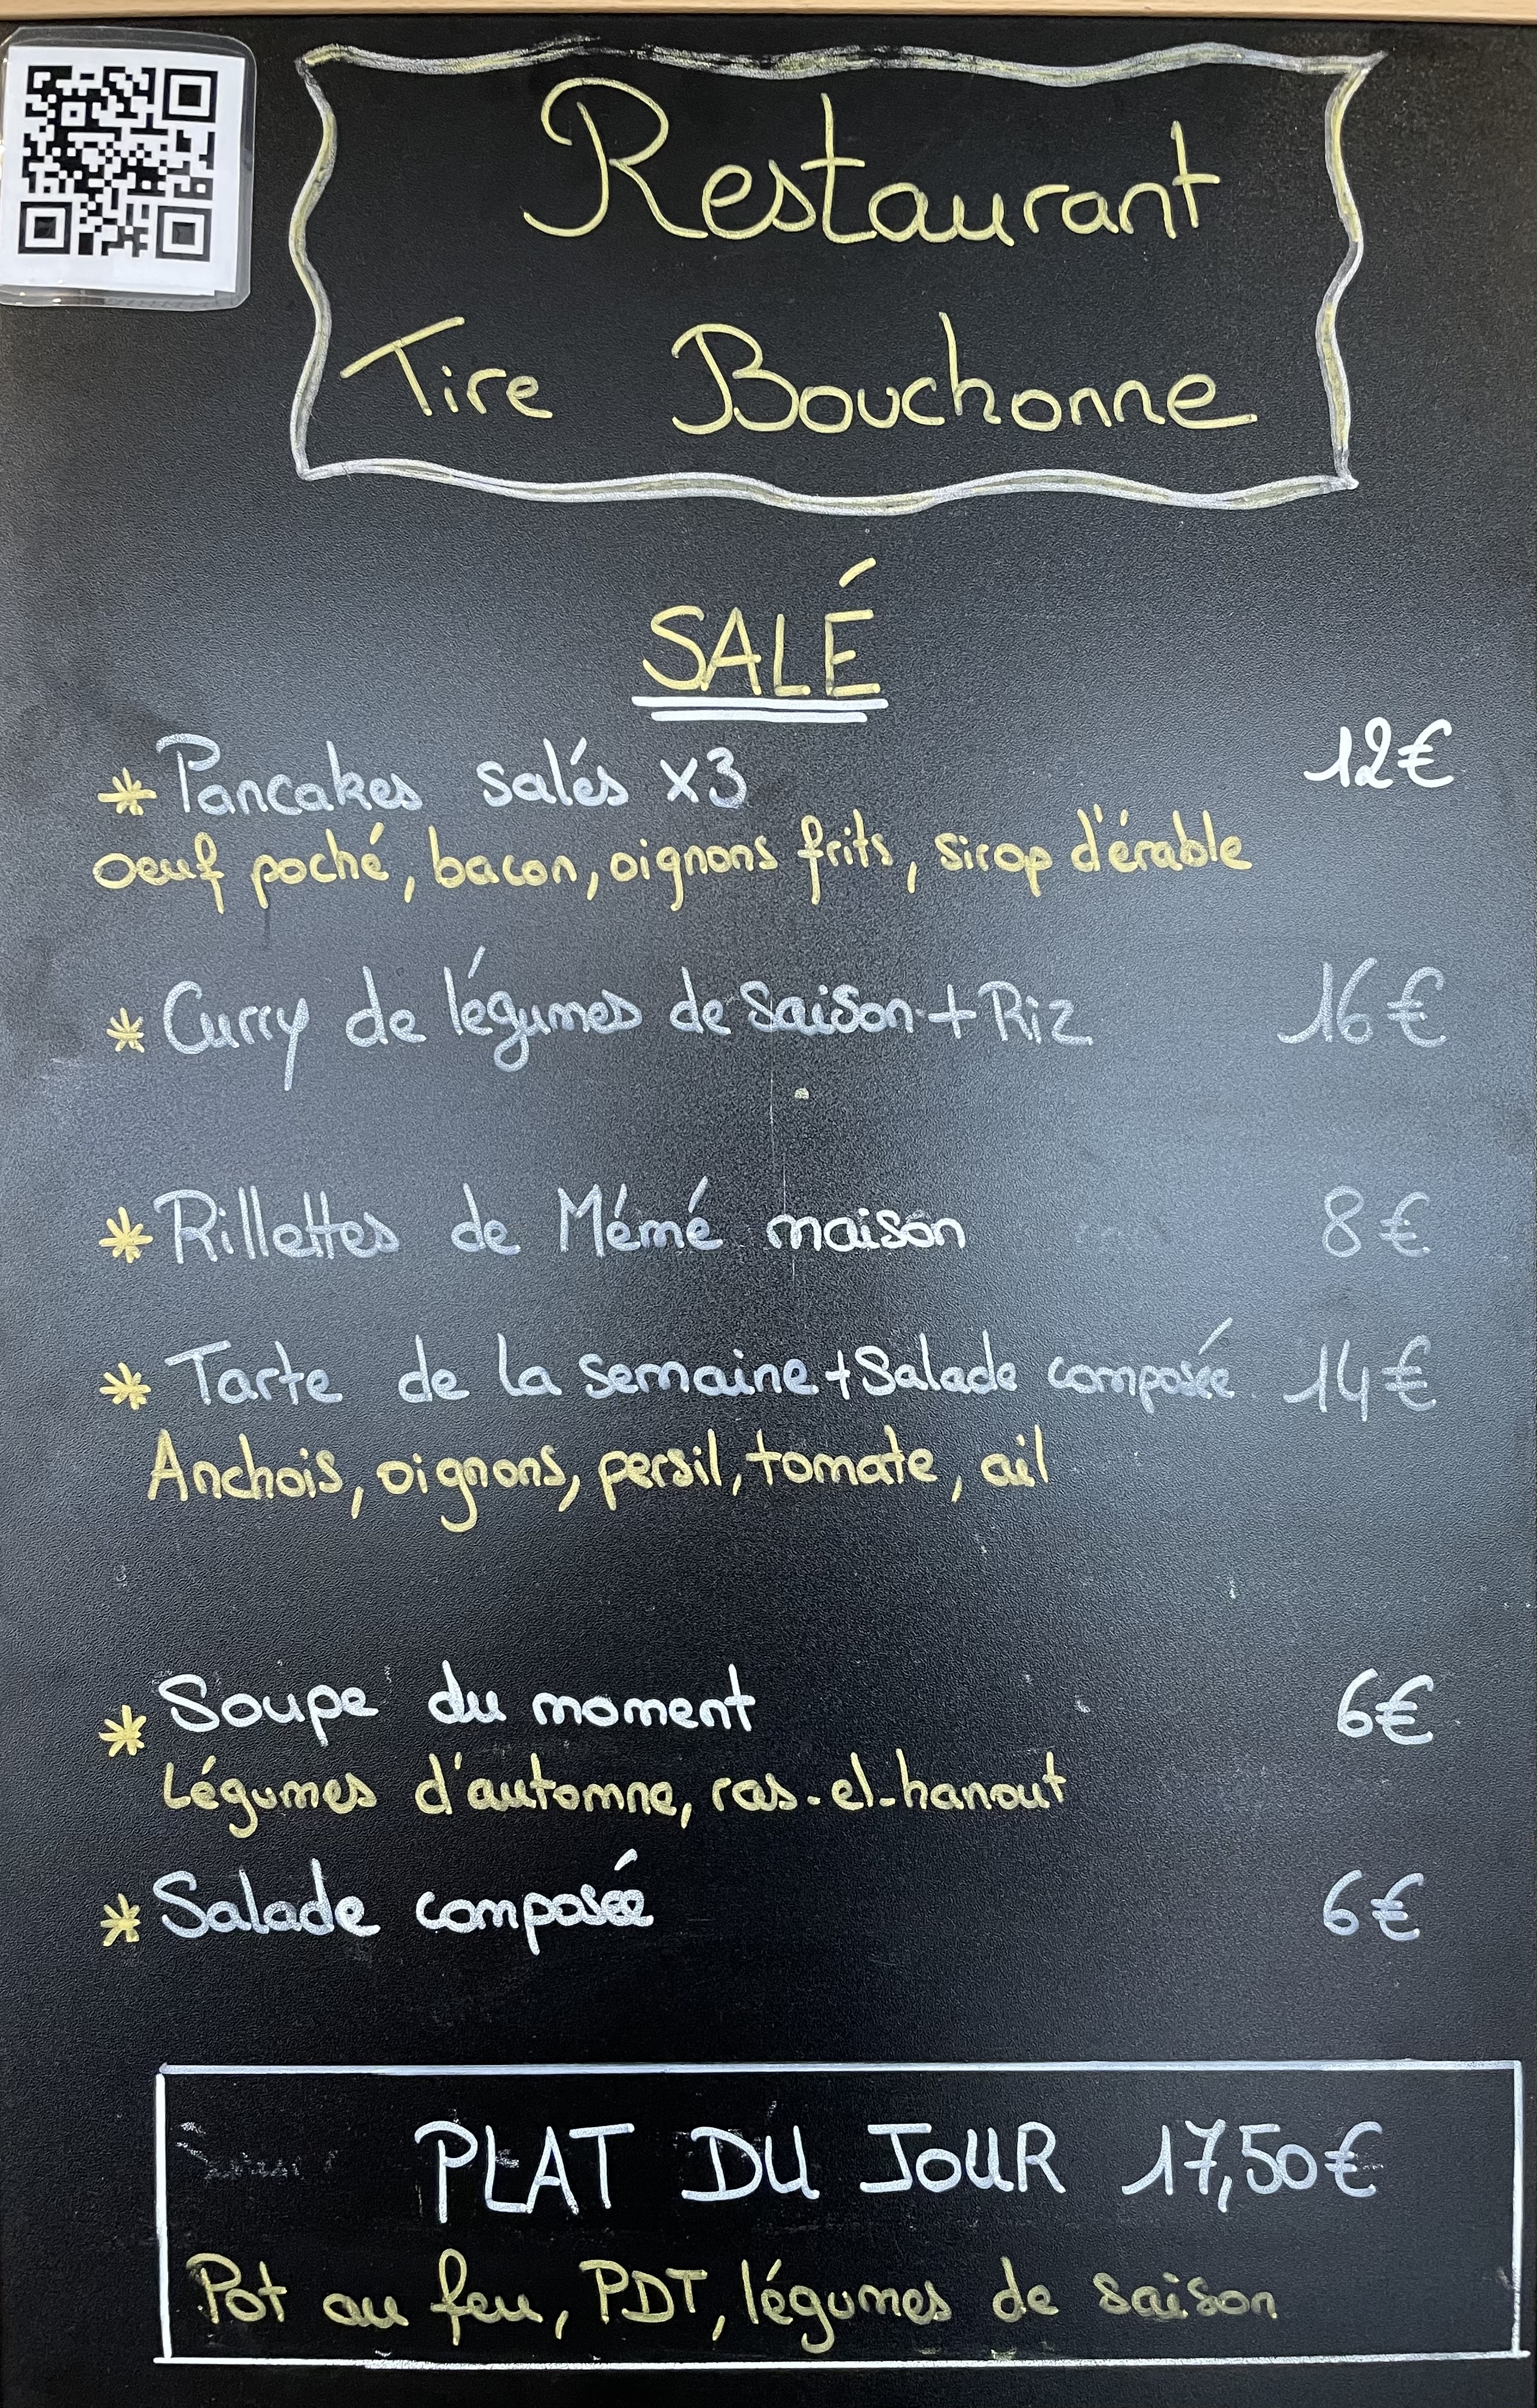 Restaurant
Tire Bouchonne
SALÉ
* Pancakes salés x3 12€
oeuf poché, bacon, oignons frits, sirop d'érable
* Curry de légumes de saison + Riz 16€
* Rillettes de Mémé maison 8€
* Tarte de la semaine + Salade composée 14€
Anchois, oignons, persil, tomate, ail
* Soupe du moment 6€
Légumes d'automne, ras-el-hanout
* Salade composée 6€
PLAT DU JOUR 17,50€
Pot au feu, PDT, légumes de saison